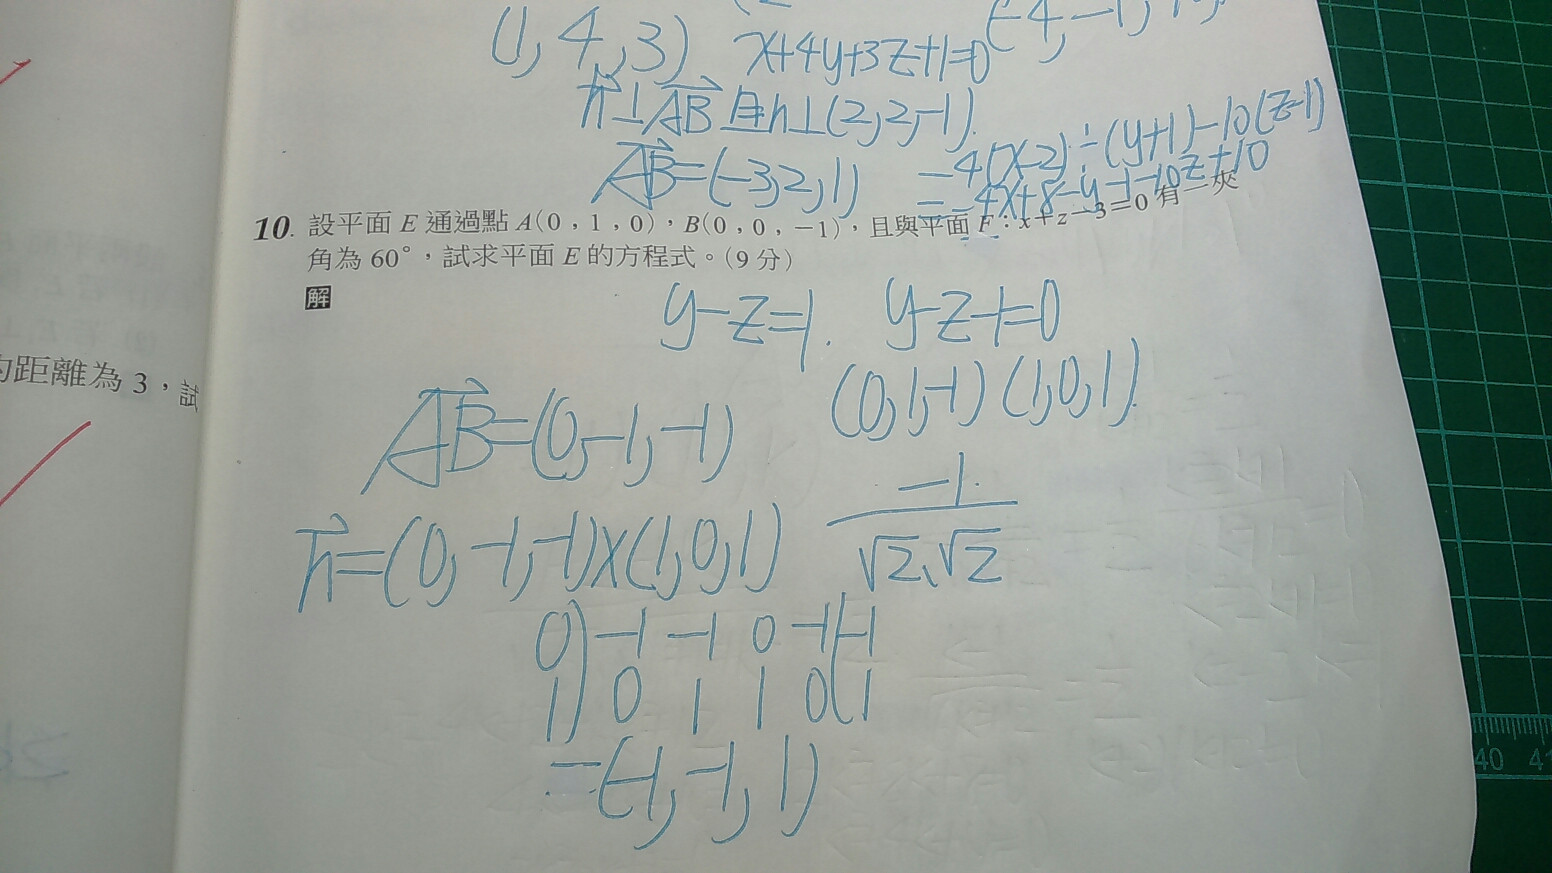 (1,4,3) x+4y+3z+1=0 (-4,-1,
n⊥AB 且n⊥(2,2,-1).
AB=(-3,2,1) =-4(x-2)-(y+1)-10(z-1)
=-4x+8-y-1-10z+10
10. 設平面 E 通過點 A(0,1,0),B(0,0,-1),且與平面 F:x+z-3=0 有一夾
角為 60°,試求平面 E 的方程式。(9 分)
解
y-z=1. y-z-1=0
的距離為 3,試
AB=(0,-1,-1) (0,1,-1) (1,0,1).
n=(0,-1,-1)×(1,0,1) -1/√2.√2
0) -1 -1 0 -1(-1
1) 0 1 1 0(1
=(-1,-1,1)
40 41